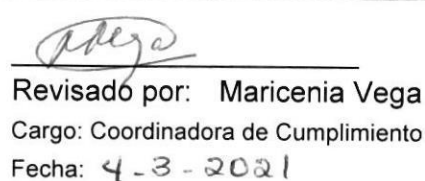 Revisado por: Maricenia Vega
Cargo: Coordinadora de Cumplimiento
Fecha: 4-3-2021